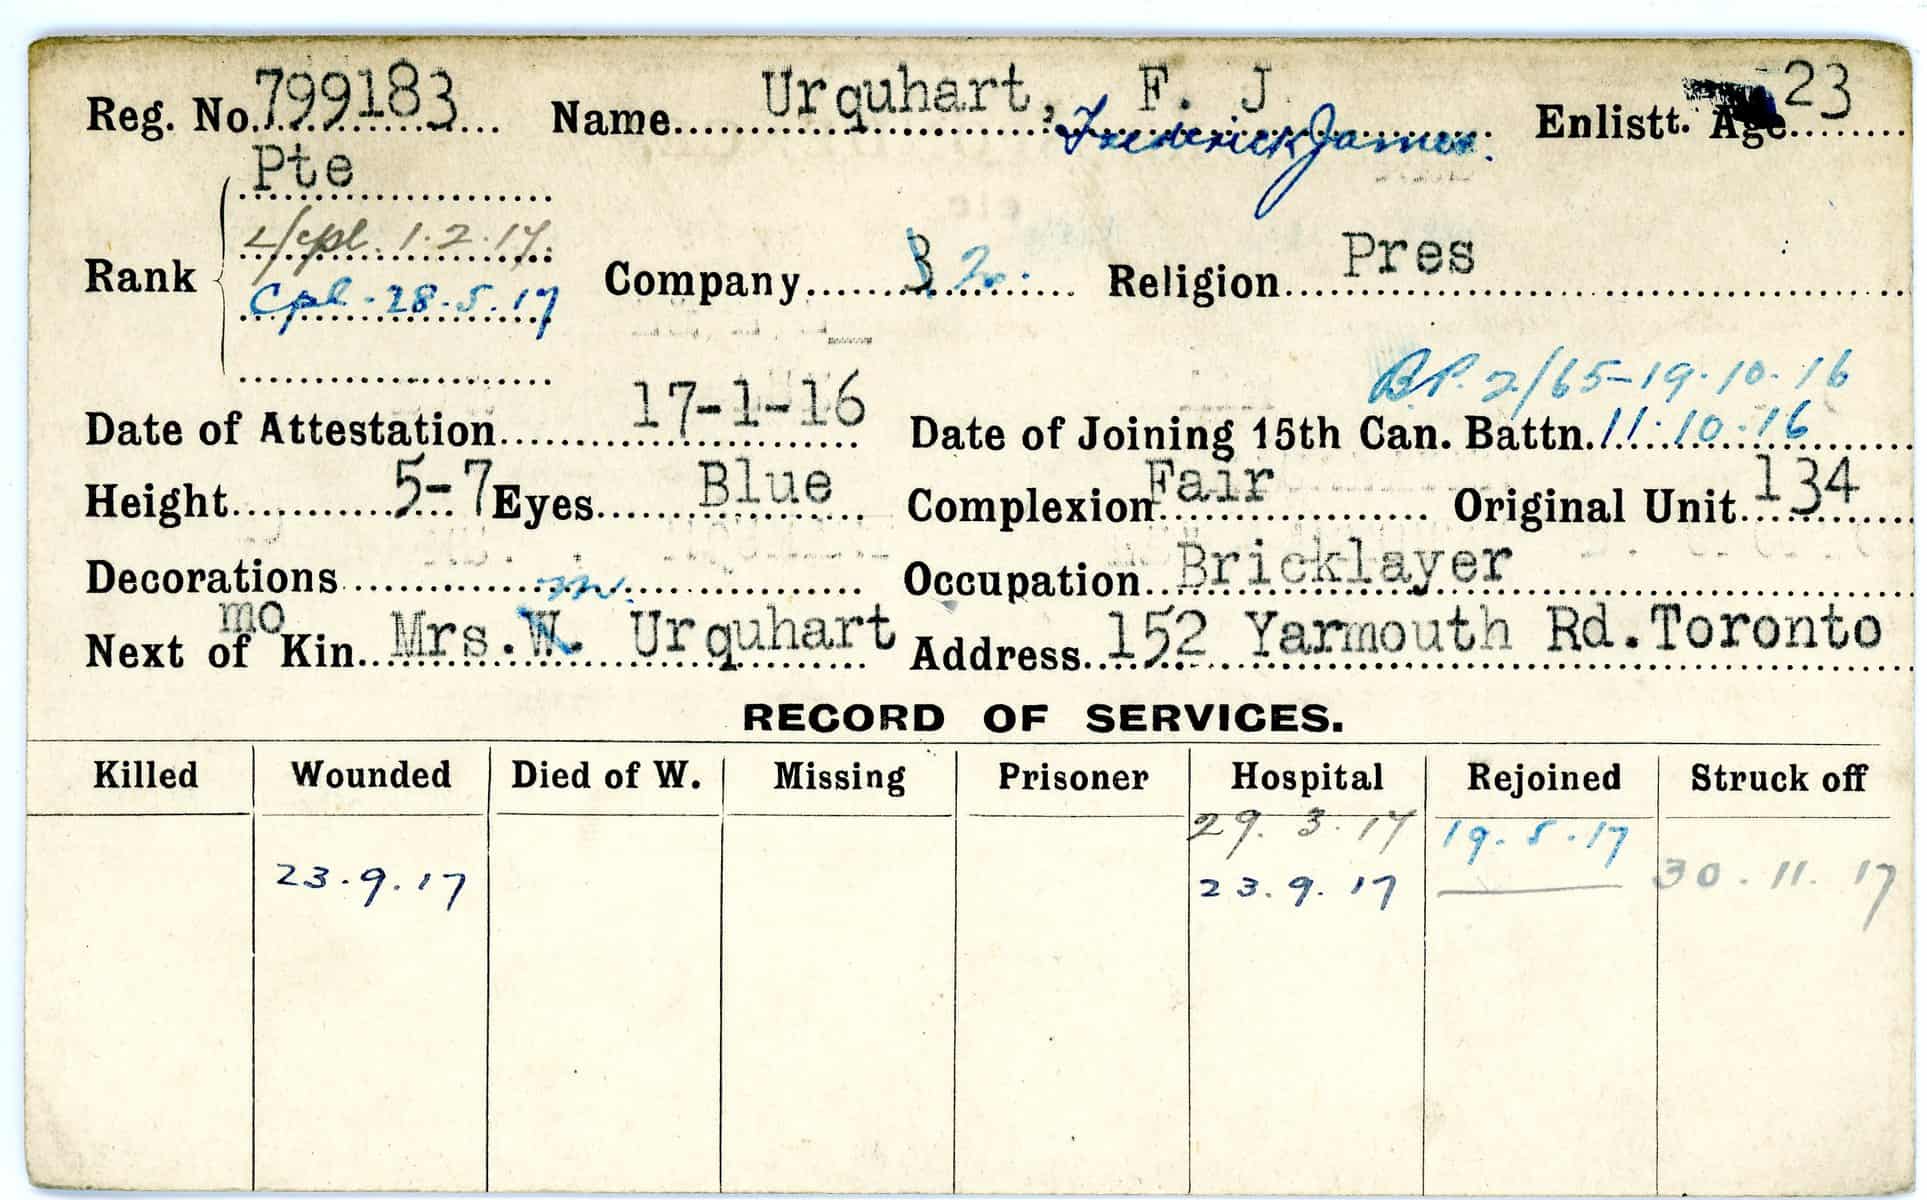 Reg. No. 799183 Name Urquhart, F. J Enlistt. Age 23
Frederick James.
Pte
L/cpl. 1.2.17.
Rank Company Religion Pres
Cpl. 28.5.17
B.P. 2/65-19.10.16
Date of Attestation 17-1-16 Date of Joining 15th Can. Battn. 11.10.16
Height 5-7 Eyes Blue Complexion Fair Original Unit 134
Decorations Occupation Bricklayer
mo m.
Next of Kin Mrs. W. Urquhart Address 152 Yarmouth Rd. Toronto
RECORD OF SERVICES.
Killed Wounded Died of W. Missing Prisoner Hospital Rejoined Struck off
29.3.17 19.5.17
23.9.17 23.9.17 30.11.17